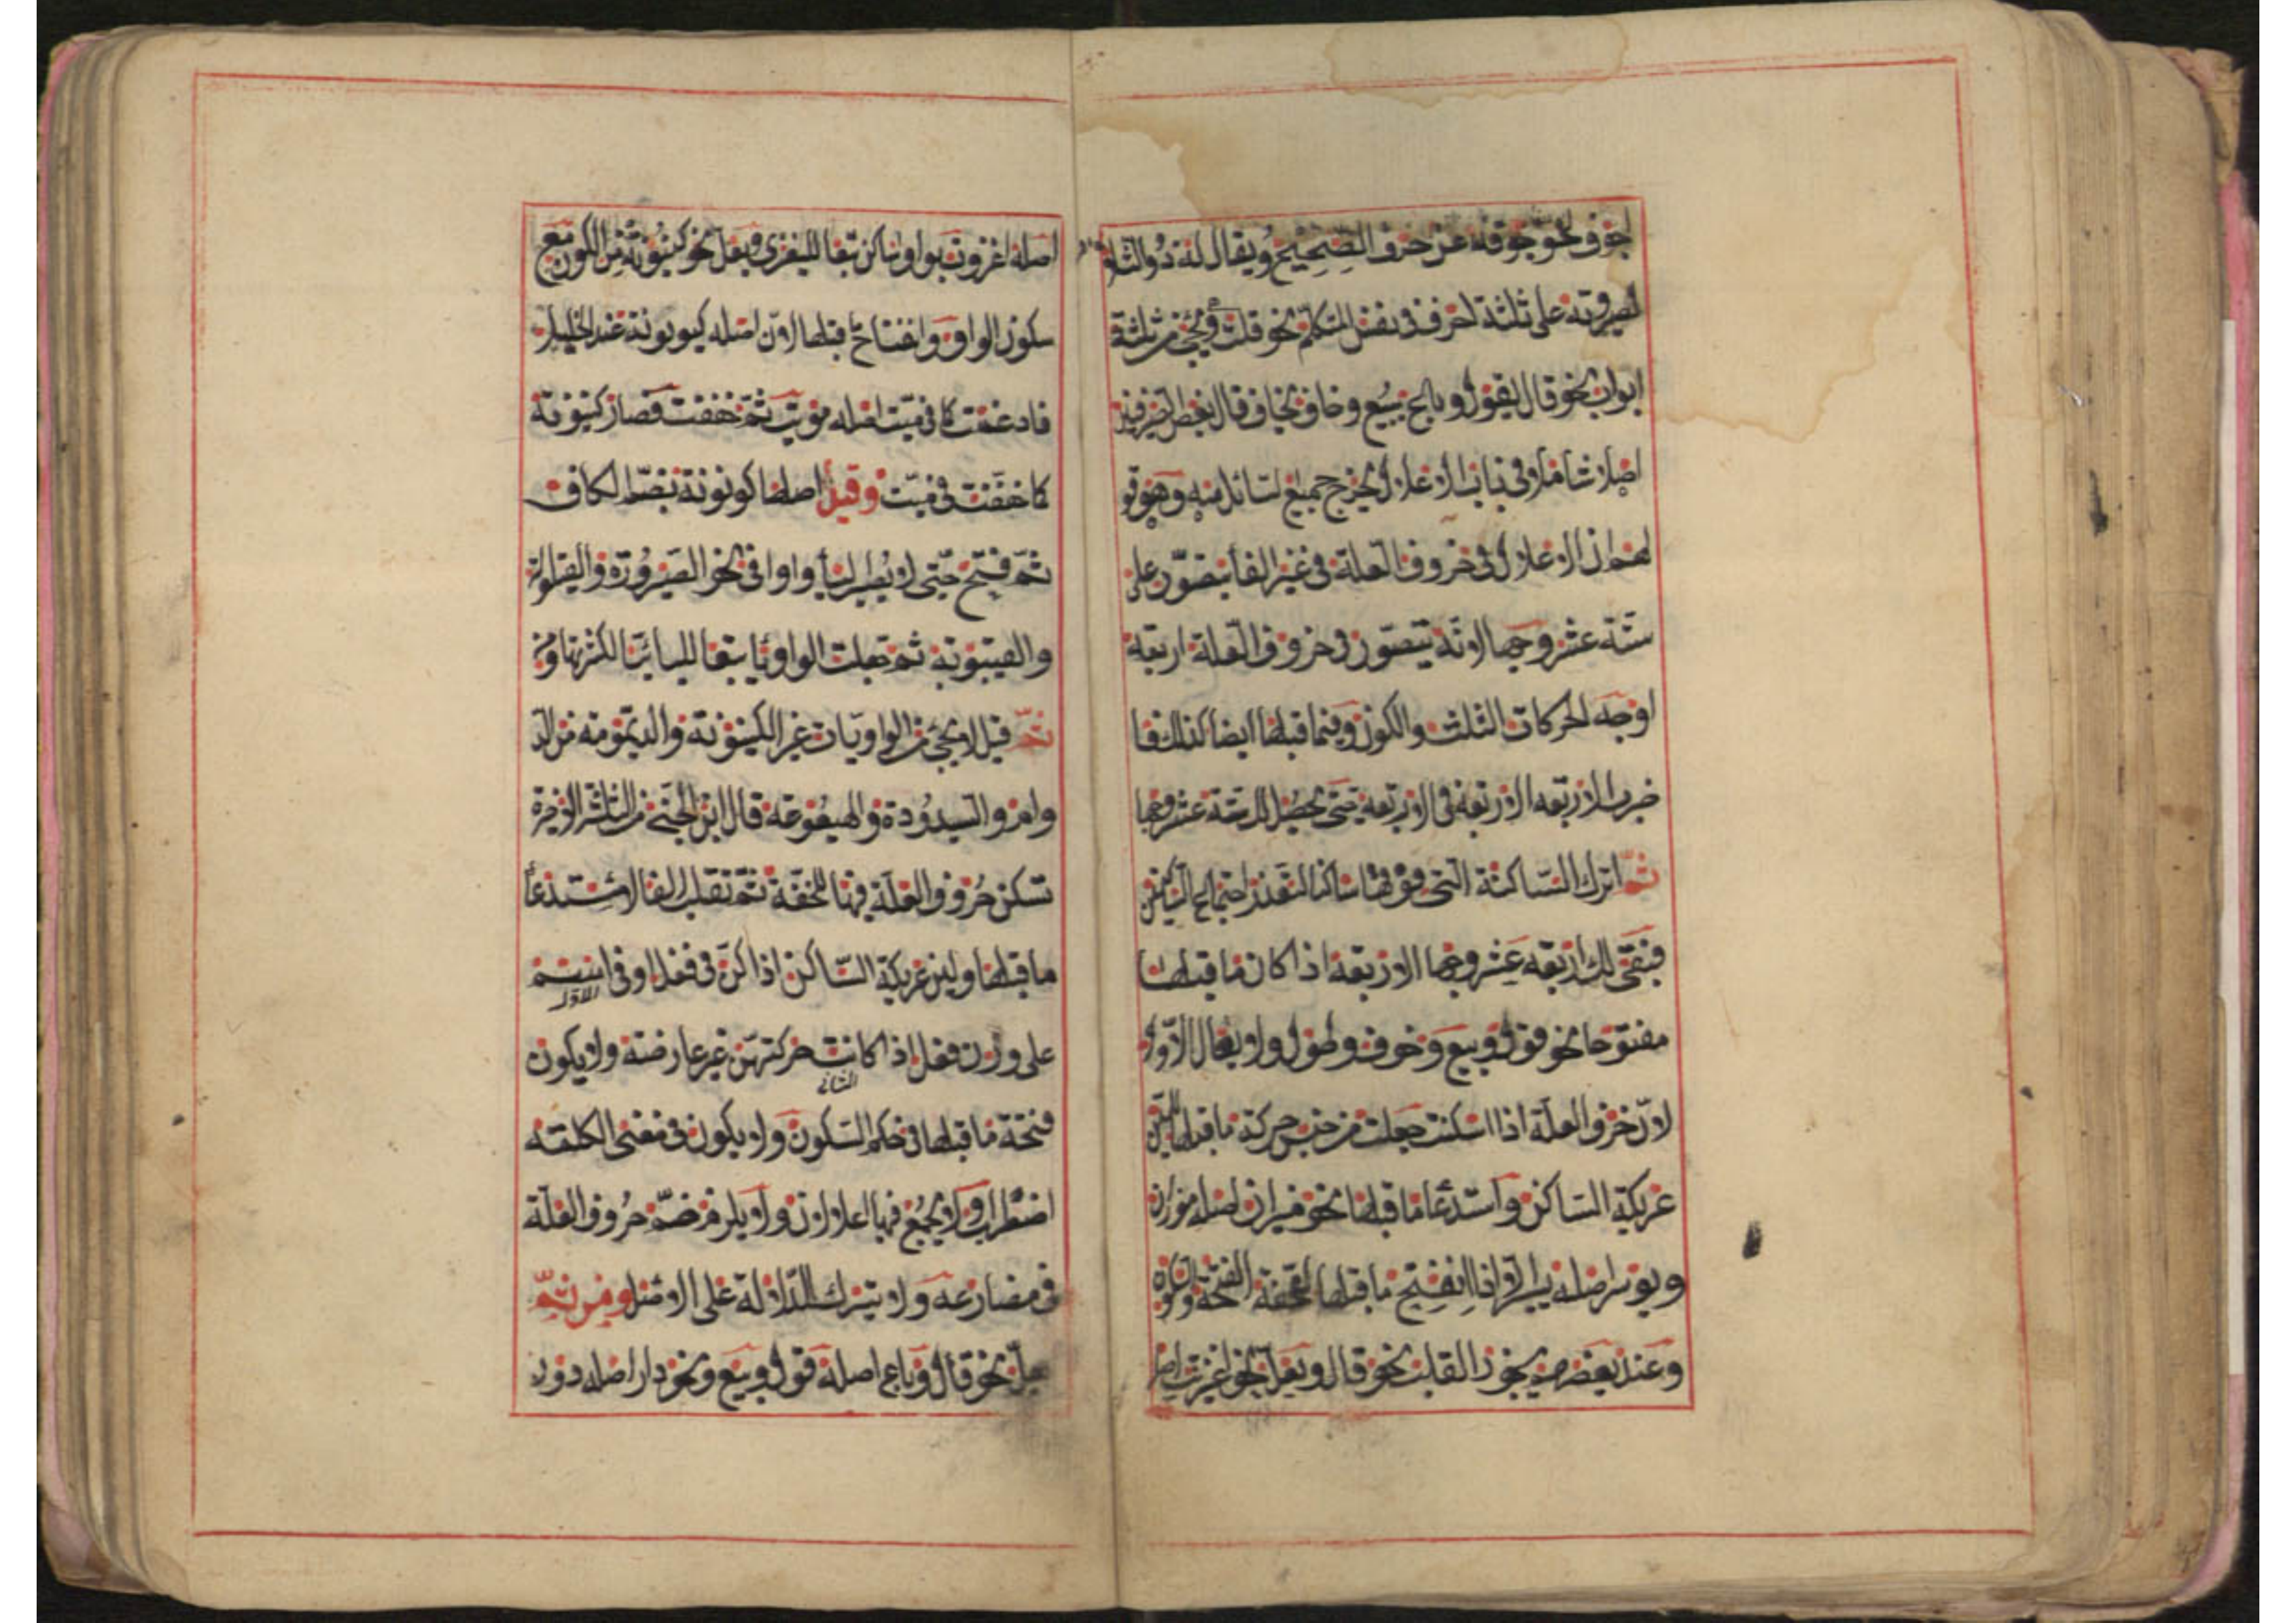 اجوف لخلو جوفه عن حرف الصحيح ويقال له ذو الثلثة
لصيروته على ثلثة احرف فى نفس المتكلم نحو قلت ويجئ من ثلثة
ابواب نحو قال يقول وباع يبيع وخاف يخاف قال بعض الصرفيين
اصلا شاملا فى باب الاعلال يخرج جميع لسائل منه وهو قو
لهم ان الاعلال فى حروف العلة فى غير الفا يتصور على
ستة عشر وجها لانه يتصور فى حروف العلة اربعة
اوجه الحركات الثلث والسكون وفيما قبلها ايضا كذلك فا
ضرب الاربعه الاربعة فى الاربعه حتى يحصل لك ستة عشر وجها
ثم اترك الساكنة التى فوقها ساكنا لتعذر اجتماع الساكنين
فبقى لك اربعة عشر وجها الاربعة اذا كان ما قبلها
مفتوحا نحو قول وبيع وخوف وطول ولا يعال الاول
لان حرف العلة اذا اسكنت جعلت من جنس حركة ما قبلها للين
عريكة الساكن واستدعا ما قبلها نحو ميزان اصله موزان
ويوسر اصله ييسر الا اذا انفتح ما قبلها لخفة الفتحة والسكون
وعند بعضهم يجوز القلب نحو قال ويعل نحو اغزيت اصله
اصله اغزوت بواو ساكن تبعا لليغزى ويعل نحو كينونة من الكون مع
سكون الواو وانفتاح قبلها لان اصله كيونونة عند الخليل
فادغمت كما فى ميت اصله مويت ثم خففت فصار كينونة
كما خففت فى ميت وقيل اصلها كونونة بضم الكاف
ثم فتح حتى لا يصير ليا واوا فى نحو الصيرورة والقيلولة
والغيبوبه ثم جعلت الواو يا تبعا لليائيات لكثرتها ومن
ثم قيل لا يجئ من الواويات غير الكينونة والديمومة من الد
وام والسيدودة والهيعوعة قال ابن الجنى من الثلثة الاخيرة
تسكن حروف العلة فيها للخفة ثم تقلب الفا لاستدعا
ما قبلها ولين عريكة الساكن اذا كن فى فعل او فى اسم
الاول
على وزن فعل اذا كانت حركتهن غير عارضة ولا يكون
الثانى
فتحة ما قبلها فى حكم السكون ولا يكون فى معنى الكلمة
اضطراب ولا يجمع فيها اعلالان ولا يلزم ضم حروف العلة
فى مضارعه ولا يترك الدلالة على الاصل ومن ثم
يعل نحو قال وباع اصله قول وبيع ونحو دار اصله دور